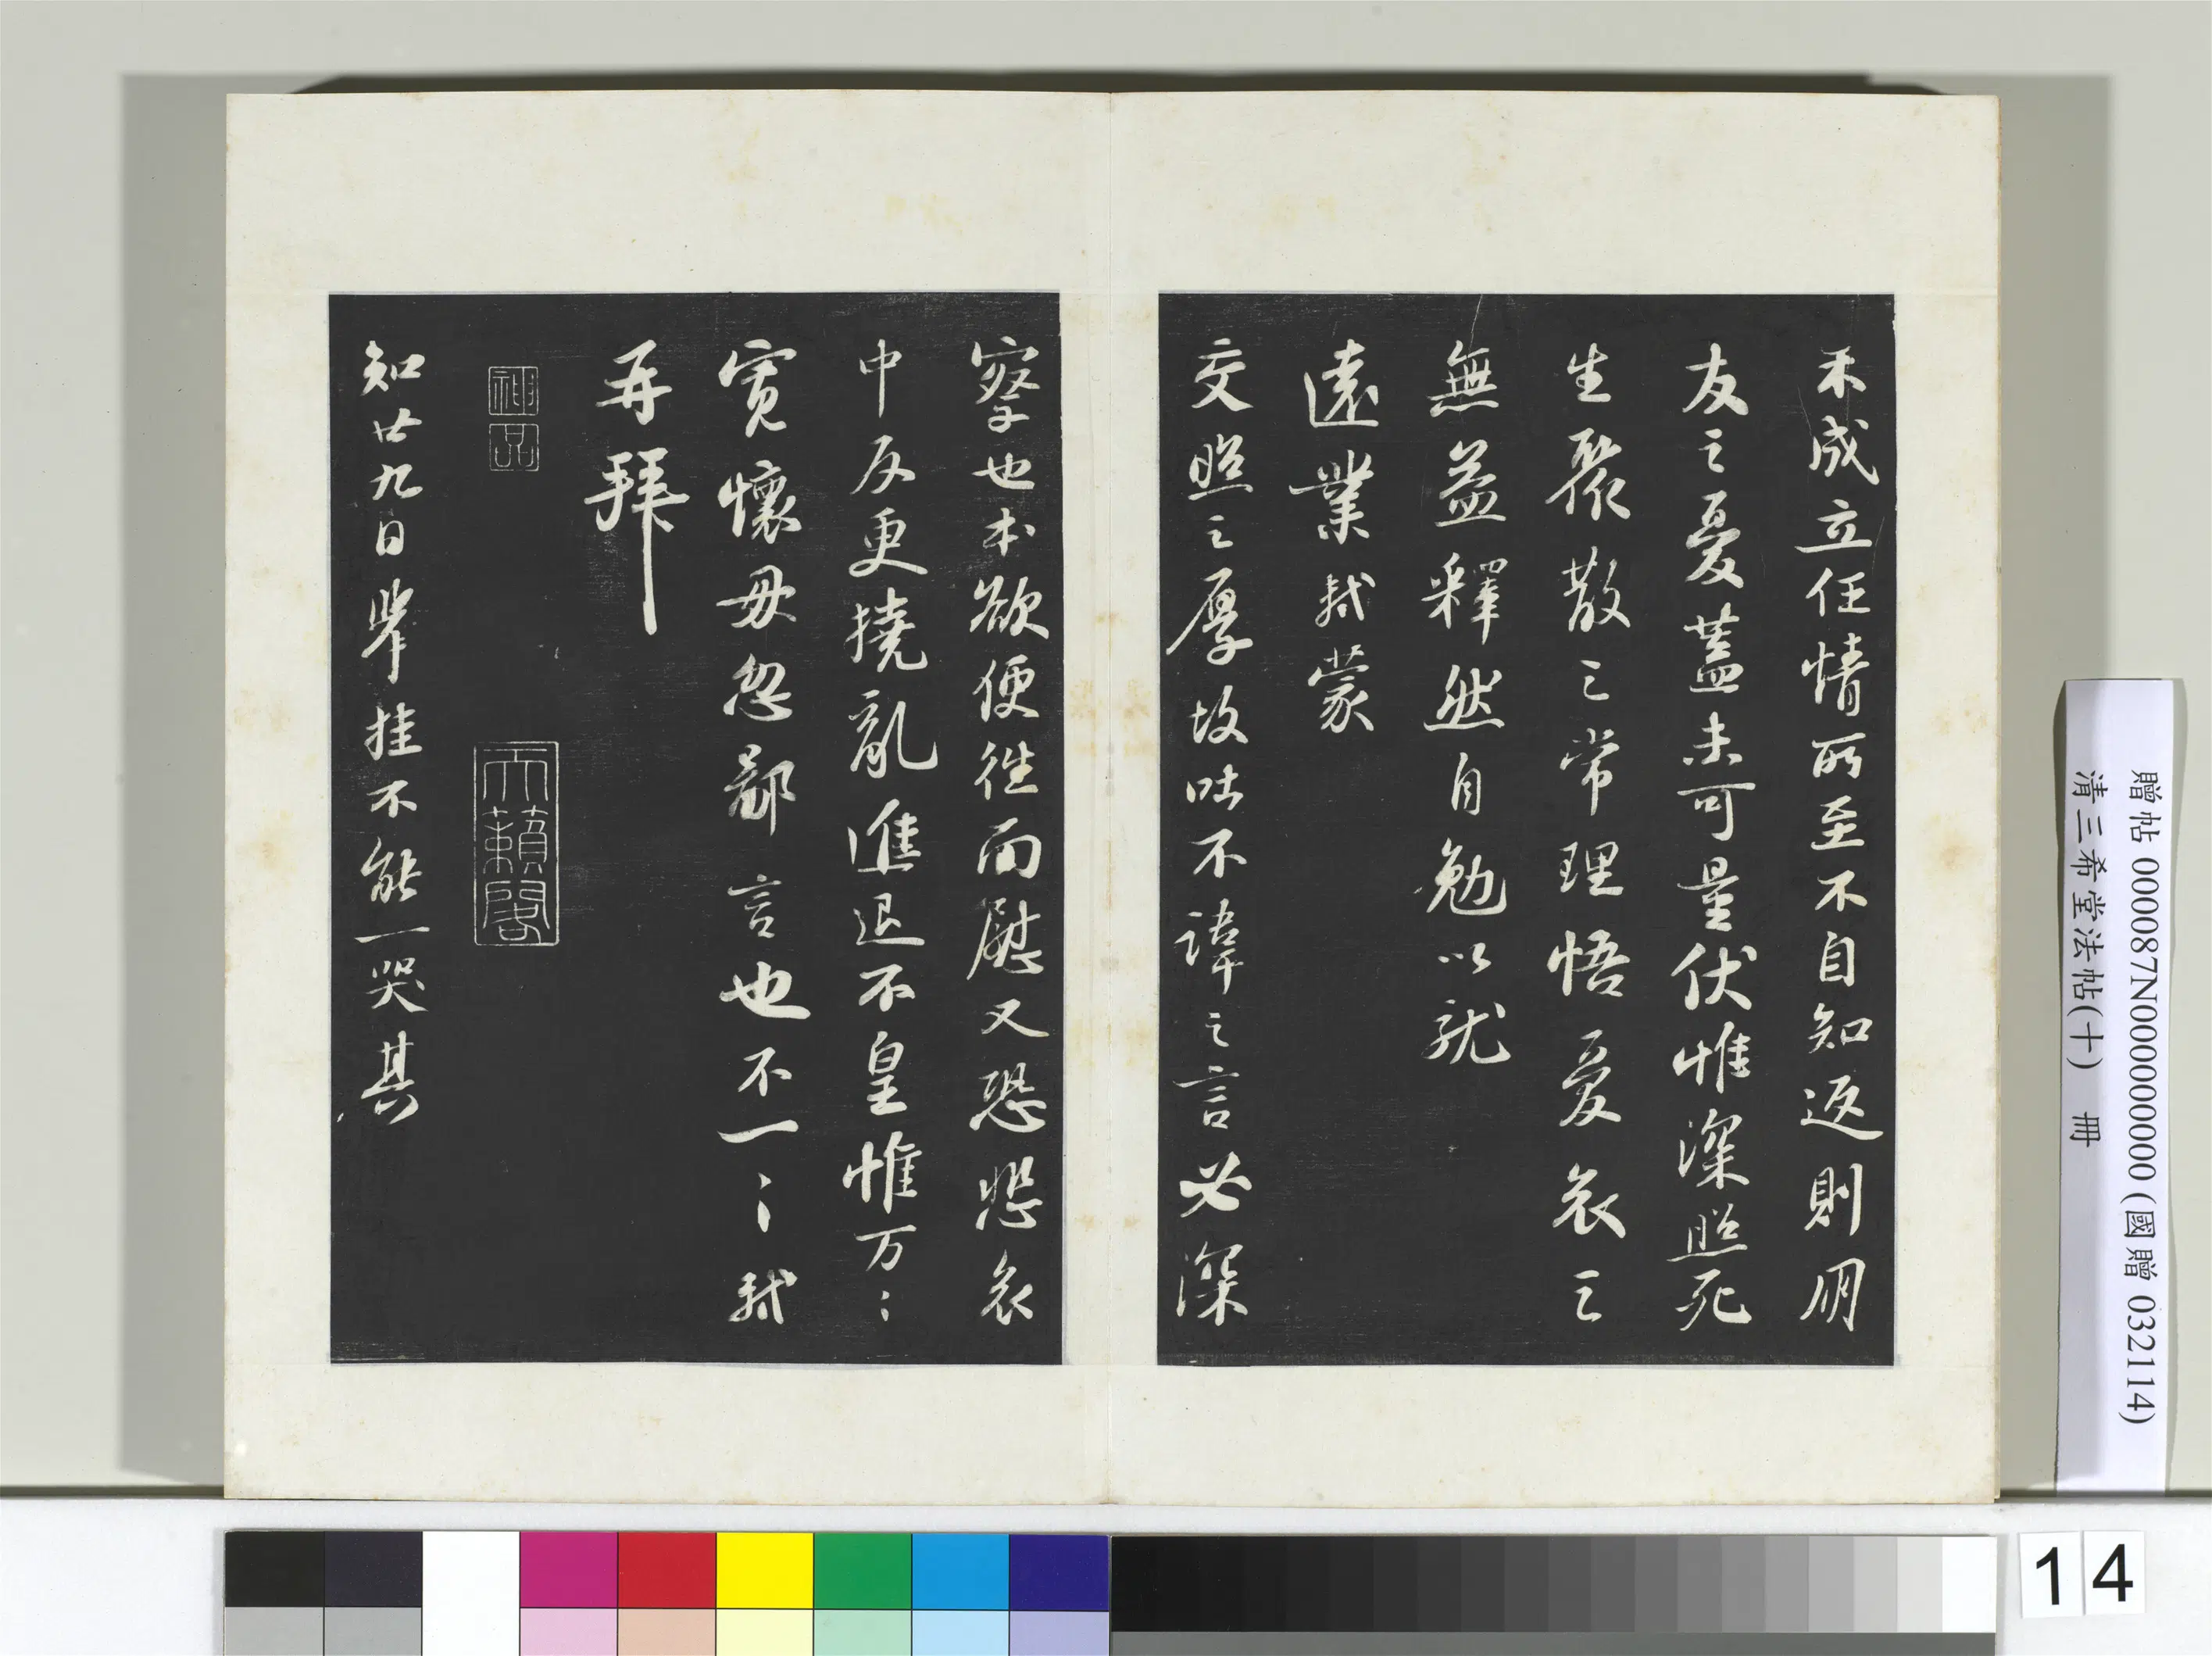 未成立任情所至不自知返則朋
友之憂蓋未可量伏惟深照死
生聚散之常理悟憂哀之
無益釋然自勉以就
遠業軾蒙
交照之厚故吐不諱之言必深
察也本欲便往面慰又恐悲哀
中反更撓亂進退不皇惟万〻
寬懷毋忽鄙言也不一〻軾
再拜
神品
天籟閣
知廿九日舉挂不能一哭其
贈帖 000087N000000000 (國贈 032114)
清三希堂法帖(十) 冊
14